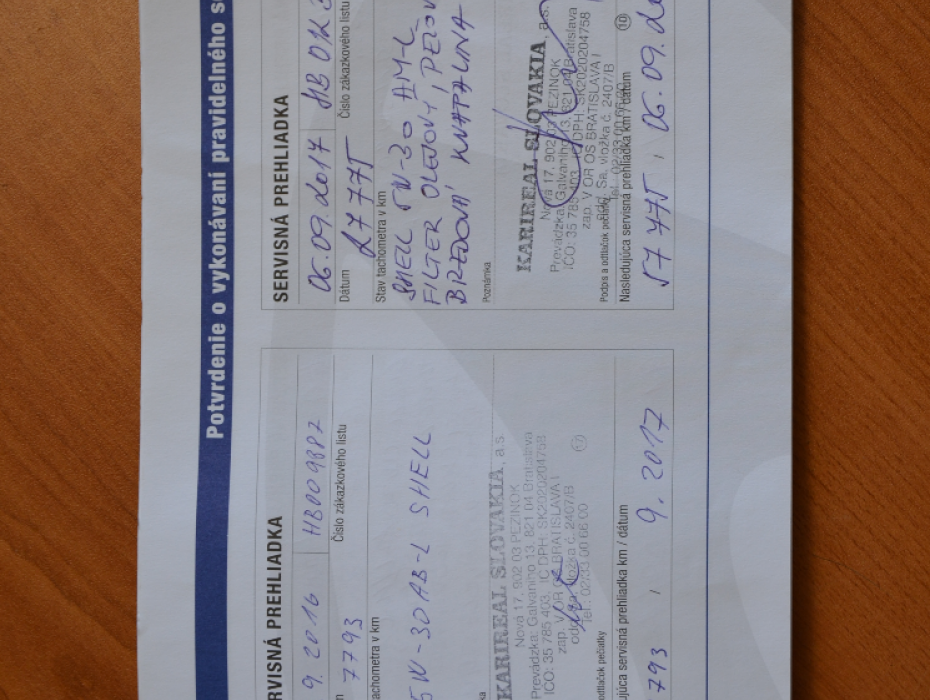 Potvrdenie o vykonávaní pravidelného
SERVISNÁ PREHLIADKA
9.2016 HB009887
Číslo zákazkového listu
7793
tachometra v km
5W-30 AB-L SHELL
KARIREAL SLOVAKIA, a.s
Nová 17, 902 03 PEZINOK
Prevádzka: Galvaniho 13, 821 04 Bratislava
IČO: 35 785 403, IČ DPH: SK2020204758
zap. V OR OS BRATISLAVA I
vložka č. 2407/B
Tel.: 02/33 00 66 00
odtlačok pečiatky
servisná prehliadka km / dátum
793 , 9. 2017
SERVISNÁ PREHLIADKA
06.09.2017
Dátum
Číslo zákazkového listu
Stav tachometra v km
SHELL 5W-30 AM-L
FILTER OLEJOVÝ, PEĽOVÝ
BRZDOVÁ KVAPALINA
Poznámka
KARIREAL SLOVAKIA, a.s.
Nová 17, 902 03 PEZINOK
Prevádzka: Galvaniho 13, 821 04 Bratislava
IČO: 35 785 403, IČ DPH: SK2020204758
zap. V OR OS BRATISLAVA I
odd. Sa, vložka č. 2407/B
Tel.: 02/33 00 66 00
Podpis a odtlačok pečiatky
Nasledujúca servisná prehliadka km / dátum